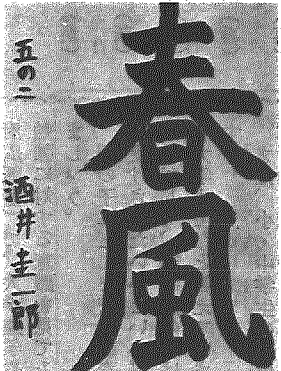 春風
五の二 酒井圭一郎